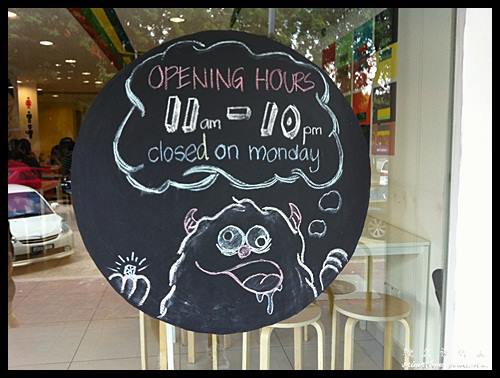 OPENING HOURS
11am - 10pm
closed on monday